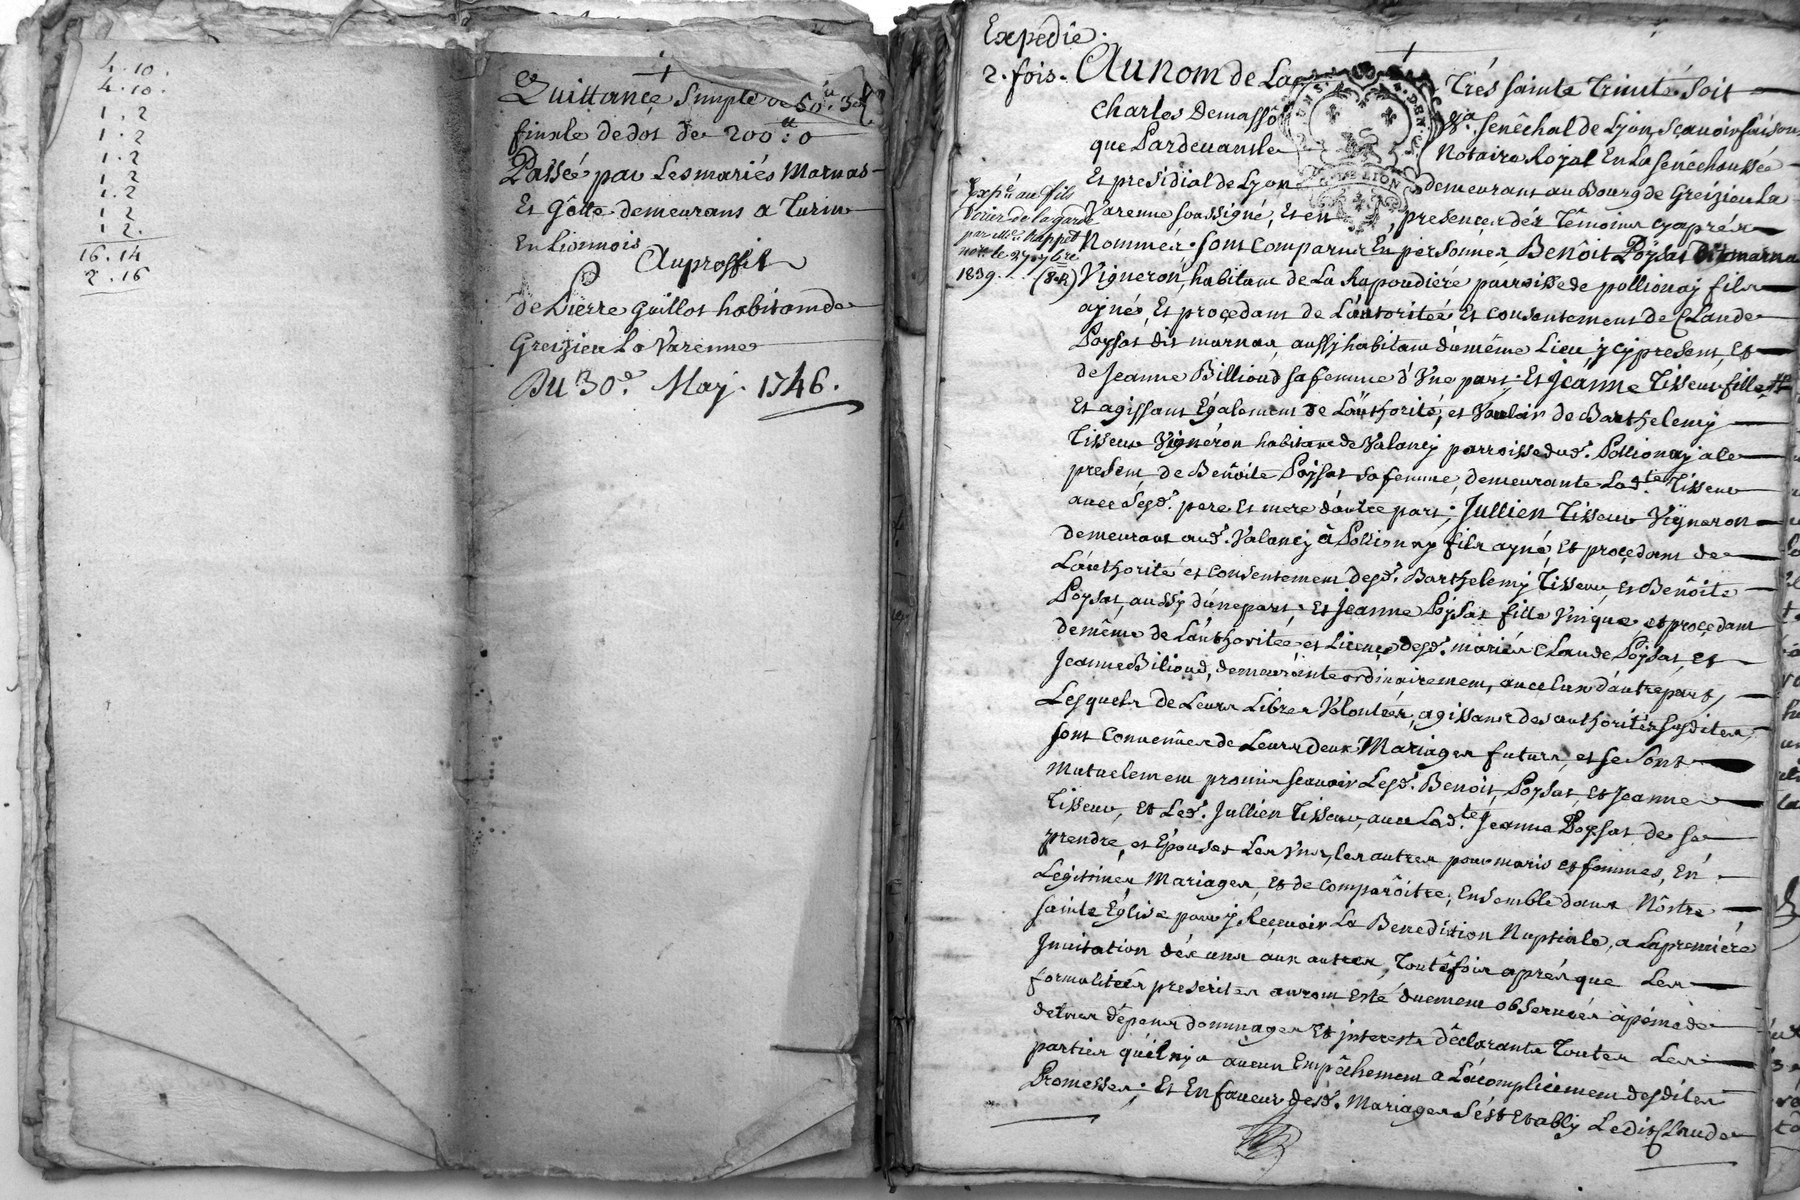 4 . 10 .
4 . 10 .
1 . 2
1 . 2
1 . 2
1 . 2
1 . 2
1 2
1 2 .
16 . 14
2 . 16
Quittance simple de 50
finale de dot de 200ᵗᵗ : 0
Passée par les mariés Marnas
Et Gôtte demeurans a Turin
En Lionnois
Auproffit
de Pierre Guillot habitam de
Greizieu La Varenne
Du 30.e May . 1746 .
Expedié .
2 . fois .
Expé. au fils
par Me.
not. le 27
1839 .
Au nom de La Trés sainte Trinité soit
Charles Demasso Senêchal de Lyon, scavoir faisons
que Pardevant le Notaire Royal En La senêchaussée
Et presidial de Lyon demeurant au Bourg de Greizieu La
Varenne soussigné, Et en presence des Têmoins cyaprés
Nommés . sont comparus En personnes Benôit Poÿsat dit marnas
Vigneron, habitant de La Rapoudiére parroisse de pollionaÿ fils
ayné, Et procedant de L'autoritée Et consentement de Claude
Poÿsat dit marnas aussÿ habitant dumême Lieu, ycÿ present, Et
de Jeanne Billioud sa femme d'Une part ; Et Jeanne Tisseur fille
Et agissant Egalement de L'authorité, et Vouloir de Barthelemÿ
Tisseur Vigneron habitant de Valancÿ parroisse dud. Pollionaÿ a ce
present, de Benôite Poÿsat sa femme, demeurante Lad.te Tisseur
avec sesd. pere Et mere d'autre part ; Jullien Tisseur Vigneron
demeurant aud. Valancÿ à Pollionay fils ayné, Et procedant de
L'authorité et consentement desd. Barthelemÿ Tisseur, et Benôite
Poÿsat, aussy d'une part ; et Jeanne Poÿsat fille Unique et procedant
de même de L'authoritée et Licence desd. mariés Claude Poÿsat, et
Jeanne Bilioud, demeurante ordinairement, avec eux d'autre part,
Lesquels de Leurs Libres Volontés, agissans des authorités susdites,
sont convenües de Leurs deux Mariages futurs, et se sont
Mutuelement promis scavoir Lesd. Benoit Poÿsat, et Jeanne
Tisseur, et Led. Jullien Tisseur, avec Lad.te Jeanne Poÿsat de se
prendre, et Epouser Les Uns, les autres pour maris et femmes, En
Legitimes Mariages, et de comparôitre, Ensemble dans Nôstre
sainte Eglise pour ÿ Recevoir La Benedition Nuptiale, a La premiére
Invitation dés uns aux autres, Toutêfois aprés que Les
formalitées prescrites auront esté duement observées àpeine de
tous dêpens dommages Et jnterests dêclarants Toutes Les
parties qu'il n'y a aucun Empêchement a L'acomplicement desdites
Promesses ; Et En faveur desd. Mariages s'est Etably Ledit Claude